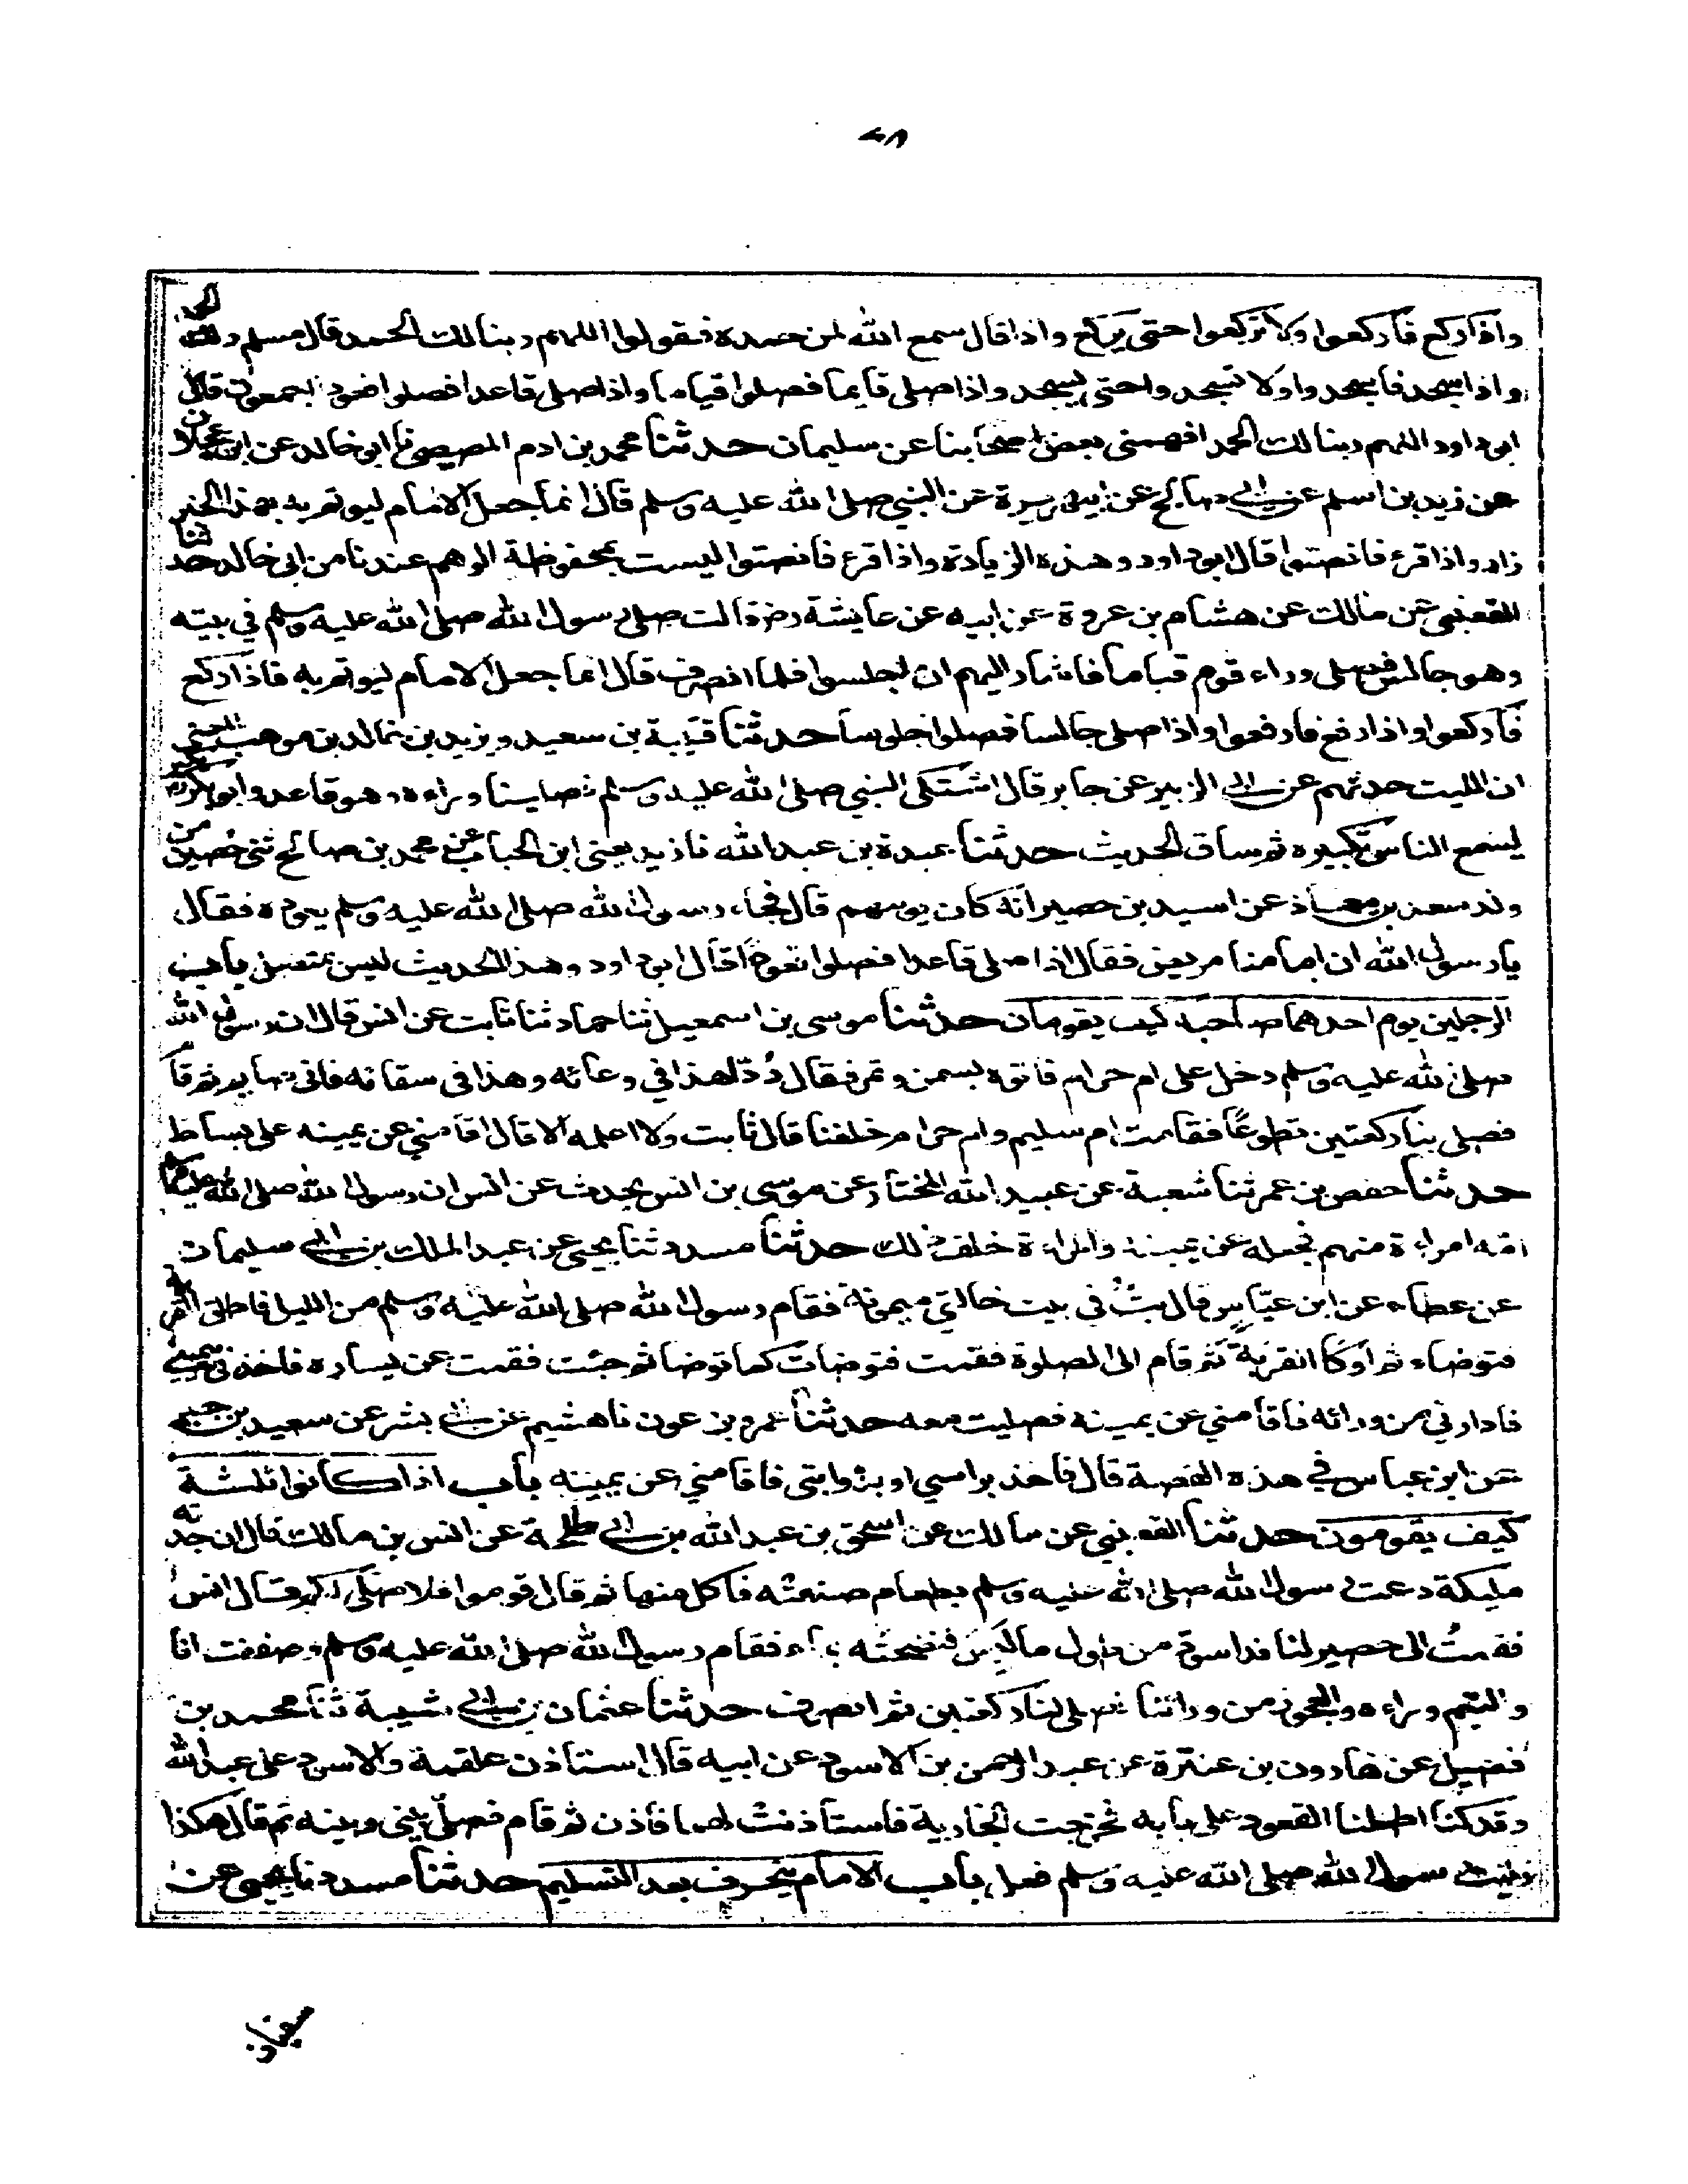 واذا ركع فاركعوا ولا تركعوا حتى يركع واذا قال سمع الله لمن حمده فقولوا اللهم ربنا لك الحمد قال مسلم ولك الحمد
واذا سجد فاسجدوا ولا تسجدوا حتى يسجد واذا صلى قايما فصلوا قياما واذا صلى قاعدا فصلوا قعودا اجمعون قال
ابو داود اللهم ربنا لك الحمد افهمنى بعض اصحابنا عن سليمان حدثنا محمد بن ادم المصيصى نا ابو خالد عن ابن عجلان
عن زيد بن اسلم عن ابى صالح عن ابى هريرة عن النبي صلى الله عليه وسلم قال انما جعل الامام ليوتم به بهذا الخبر
زاد واذا قرء فانصتوا قال ابو داود وهذه الزيادة واذا قرء فانصتوا ليست بمحفوظة الوهم عندنا من ابى خالد حدثنا
القعنبى عن مالك عن هشام بن عروة عن ابيه عن عايشة رض قالت صلى رسول الله صلى الله عليه وسلم في بيته
وهو جالس فصلى وراءه قوم قياما فاشار اليهم ان اجلسوا فلما انصرف قال انما جعل الامام ليوتم به فاذا ركع
فاركعوا واذا رفع فارفعوا واذا صلى جالسا فصلوا جلوسا حدثنا قتيبة بن سعيد ويزيد بن خالد بن موهب المعنى
ان الليث حدثهم عن ابى الزبير عن جابر قال اشتكى النبي صلى الله عليه وسلم فصلينا وراءه وهو قاعد وابو بكر يكبر
ليسمع الناس تكبيره ثم ساق الحديث حدثنا عبدة بن عبد الله نا زيد يعنى ابن الحباب عن محمد بن صالح ثنى حصين من
ولد سعد بن معاذ عن اسيد بن حضير انه كان يومهم قال فجاء رسول الله صلى الله عليه وسلم يعوده فقال
يا رسول الله ان امامنا مريض فقال اذا صلى قاعدا فصلوا قعودا قال ابو داود وهذا الحديث ليس بمتصل باب
الرجلين يوم احدهما صاحبه كيف يقومان حدثنا موسى بن اسمعيل ثنا حماد ثنا ثابت عن انس قال ان رسول الله
صلى الله عليه وسلم دخل على ام حرام فاتوه بسمن وتمر فقال ردوا هذا في وعائه وهذا في سقائه فانى صايم ثم قام
فصلى بنا ركعتين تطوعا فقامت ام سليم وام حرام خلفنا قال ثابت ولا اعلمه الا قال اقامني عن يمينه على بساط
حدثنا حفص بن عمر ثنا شعبة عن عبيد الله المختار عن موسى بن انس يحدث عن انس ان رسول الله صلى الله عليه وسلم
امه امراءة منهم فجعله عن يمينه والمراءة خلف ذلك حدثنا مسدد ثنا يحيى عن عبد الملك بن ابى سليمان
عن عطاء عن ابن عباس قال بت في بيت خالتي ميمونة فقام رسول الله صلى الله عليه وسلم من الليل فاطلق القربة
فتوضاء ثم اوكا القربة ثم قام الى الصلوة فقمت فتوضات كما توضا ثم جئت فقمت عن يساره فاخذنى بيمينى
فادارني من ورائه فاقامني عن يمينه فصليت معه حدثنا عمرو بن عون نا هشيم عن ابى بشر عن سعيد بن جبير
عن ابن عباس في هذه القصة قال فاخذ براسي او بذوابتى فاقامني عن يمينه باب اذا كانوا ثلثة
كيف يقومون حدثنا القعنبي عن مالك عن اسحق بن عبد الله بن ابى طلحة عن انس بن مالك قال ان جدته
مليكة دعت رسول الله صلى الله عليه وسلم بطعام صنعته فاكل منها ثم قال قوموا فلاصلى لكم قال انس
فقمت الى حصير لنا قد اسود من طول ما لبس فنضحته بماء فقام رسول الله صلى الله عليه وسلم وصففت انا
واليتيم وراءه والعجوز من ورائنا فصلى لنا ركعتين ثم انصرف حدثنا عثمان بن ابى شيبة ثنا محمد بن
فضيل عن هارون بن عنترة عن عبد الرحمن بن الاسود عن ابيه قال استاذن علقمة والاسود على عبد الله
وقد كنا اطلنا القعود على بابه فخرجت الجارية فاستاذنت لهما فاذن ثم قام فصلى بينى وبينه ثم قال هكذا
رايت رسول الله صلى الله عليه وسلم فعل باب الامام ينحرف بعد التسليم حدثنا مسدد نا يحيى عن